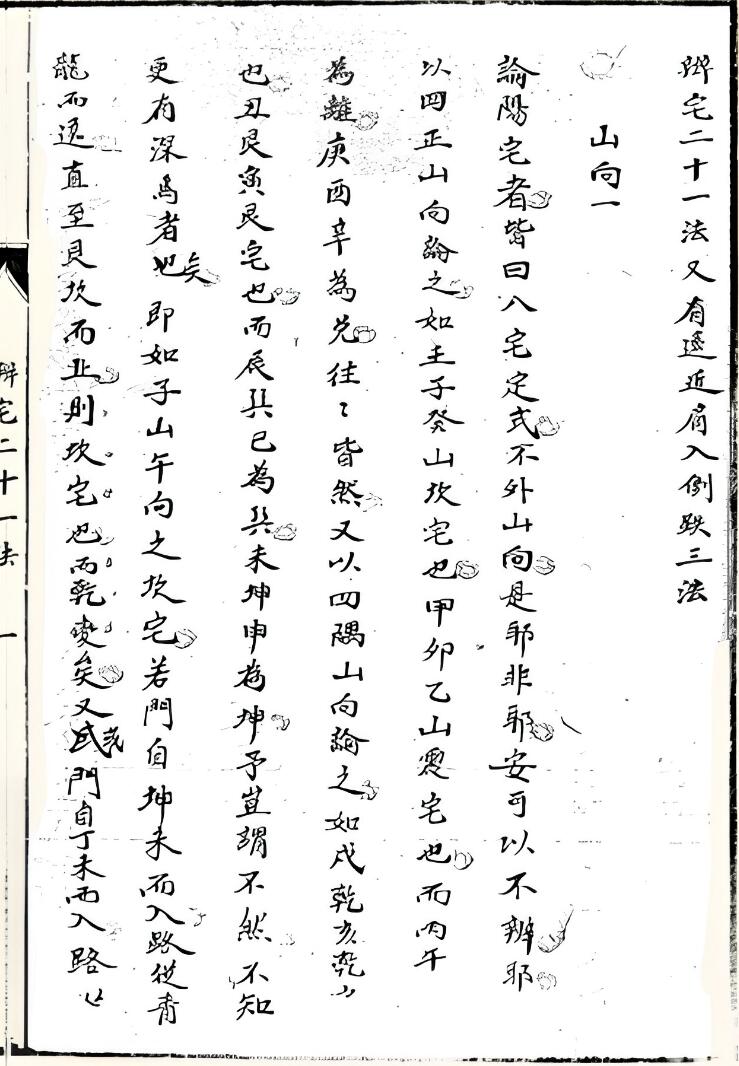 辨宅二十一法又有遠近肩入倒跌三法
山向一
論陽宅者皆曰八宅定式不外山向是耶非耶安可以不辨耶
以四正山向論之如壬子癸山坎宅也甲卯乙山震宅也而丙午
為離庚酉辛為兌往〻皆然又以四隅山向論之如戌乾亥乾山
也丑艮寅艮宅也而辰巽巳為巽未坤申為坤予豈謂不然不知
更有深焉者也矣即如子山午向之坎宅若門自坤未而入路從青
龍而透直至艮坎而止則坎宅也而乾變矣又或門自丁未而入路
辨宅二十一法 一